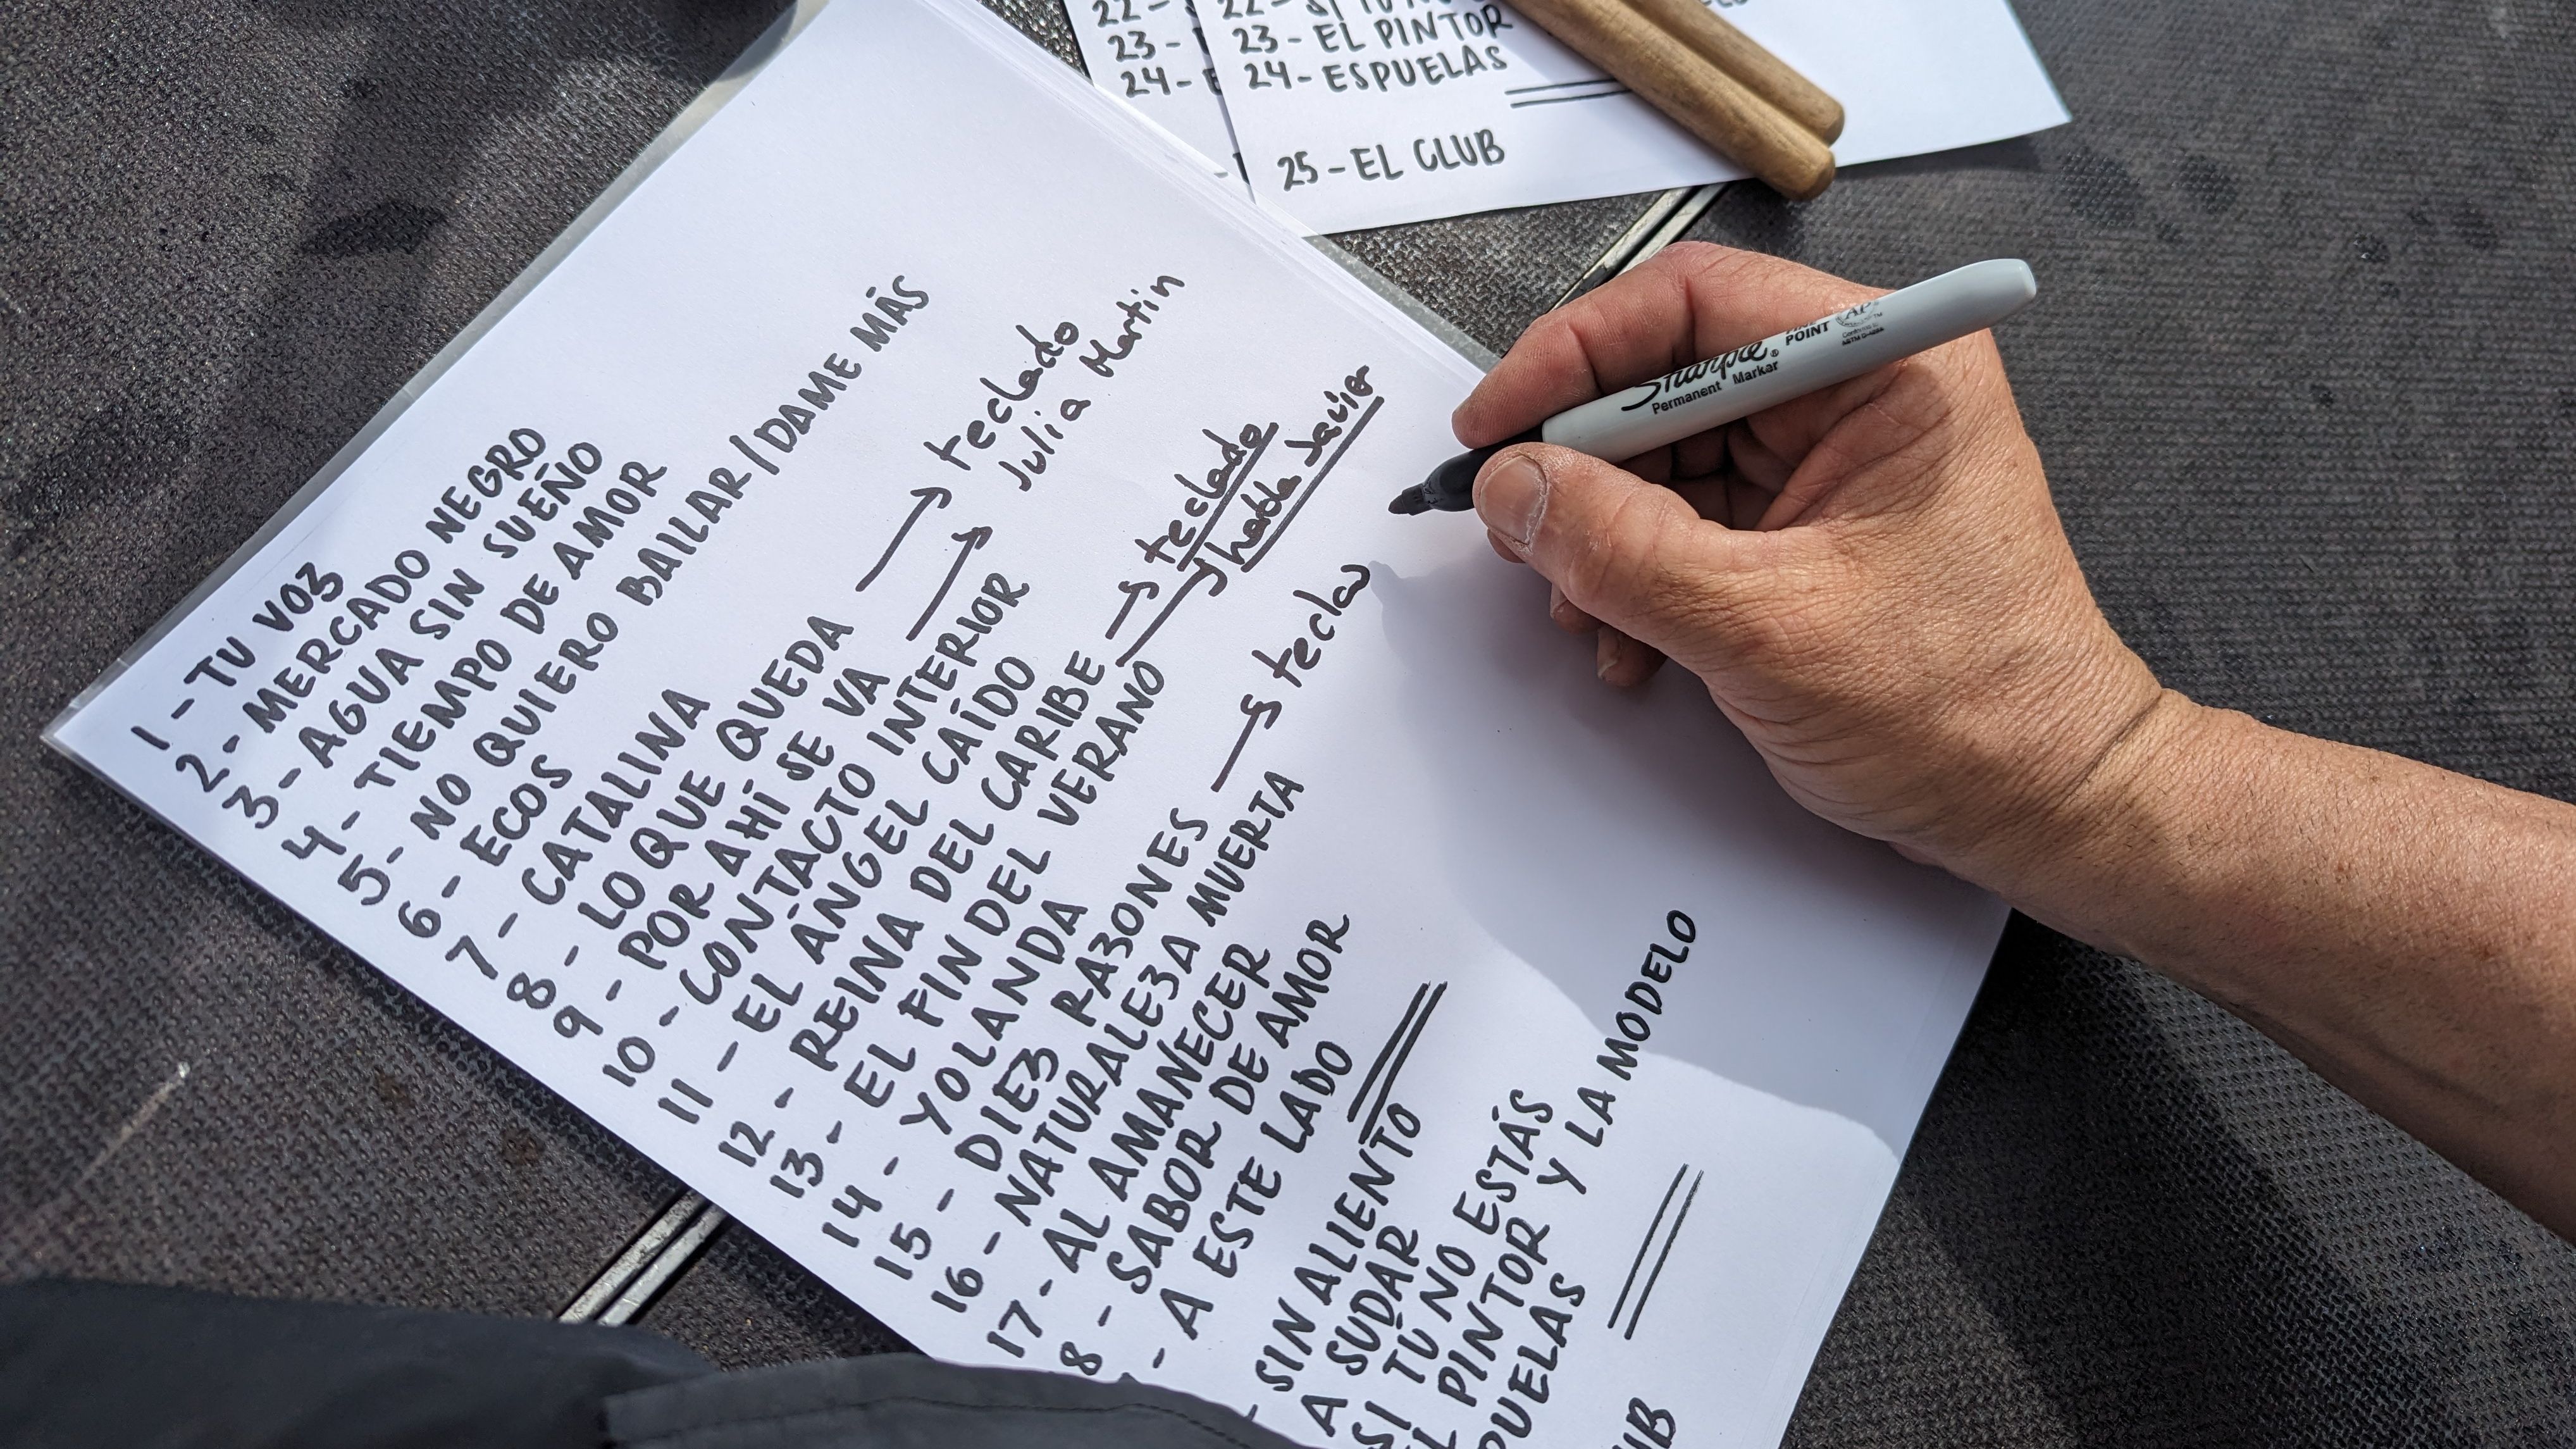 22-
23-
24-
22- SI TU NO
23- EL PINTOR
24- ESPUELAS
25- EL CLUB
1- TU VOZ
2- MERCADO NEGRO
3- AGUA SIN SUEÑO
4- TIEMPO DE AMOR
5- NO QUIERO BAILAR / DAME MÁS
6- ECOS
7- CATALINA
8- LO QUE QUEDA → teclado
9- POR AHÍ SE VA → Julia Martin
10- CONTACTO INTERIOR
11- EL ÁNGEL CAÍDO
12- REINA DEL CARIBE → teclado
13- EL FIN DEL VERANO → Javier
14- YOLANDA
15- DIEZ RAZONES → teclav
16- NATURALEZA MUERTA
17- AL AMANECER
8- SABOR DE AMOR
- A ESTE LADO
- SIN ALIENTO
A SUDAR
SI TÚ NO ESTÁS
EL PINTOR Y LA MODELO
PUELAS
UB
Sharpie®
Permanent Marker
POINT
AP